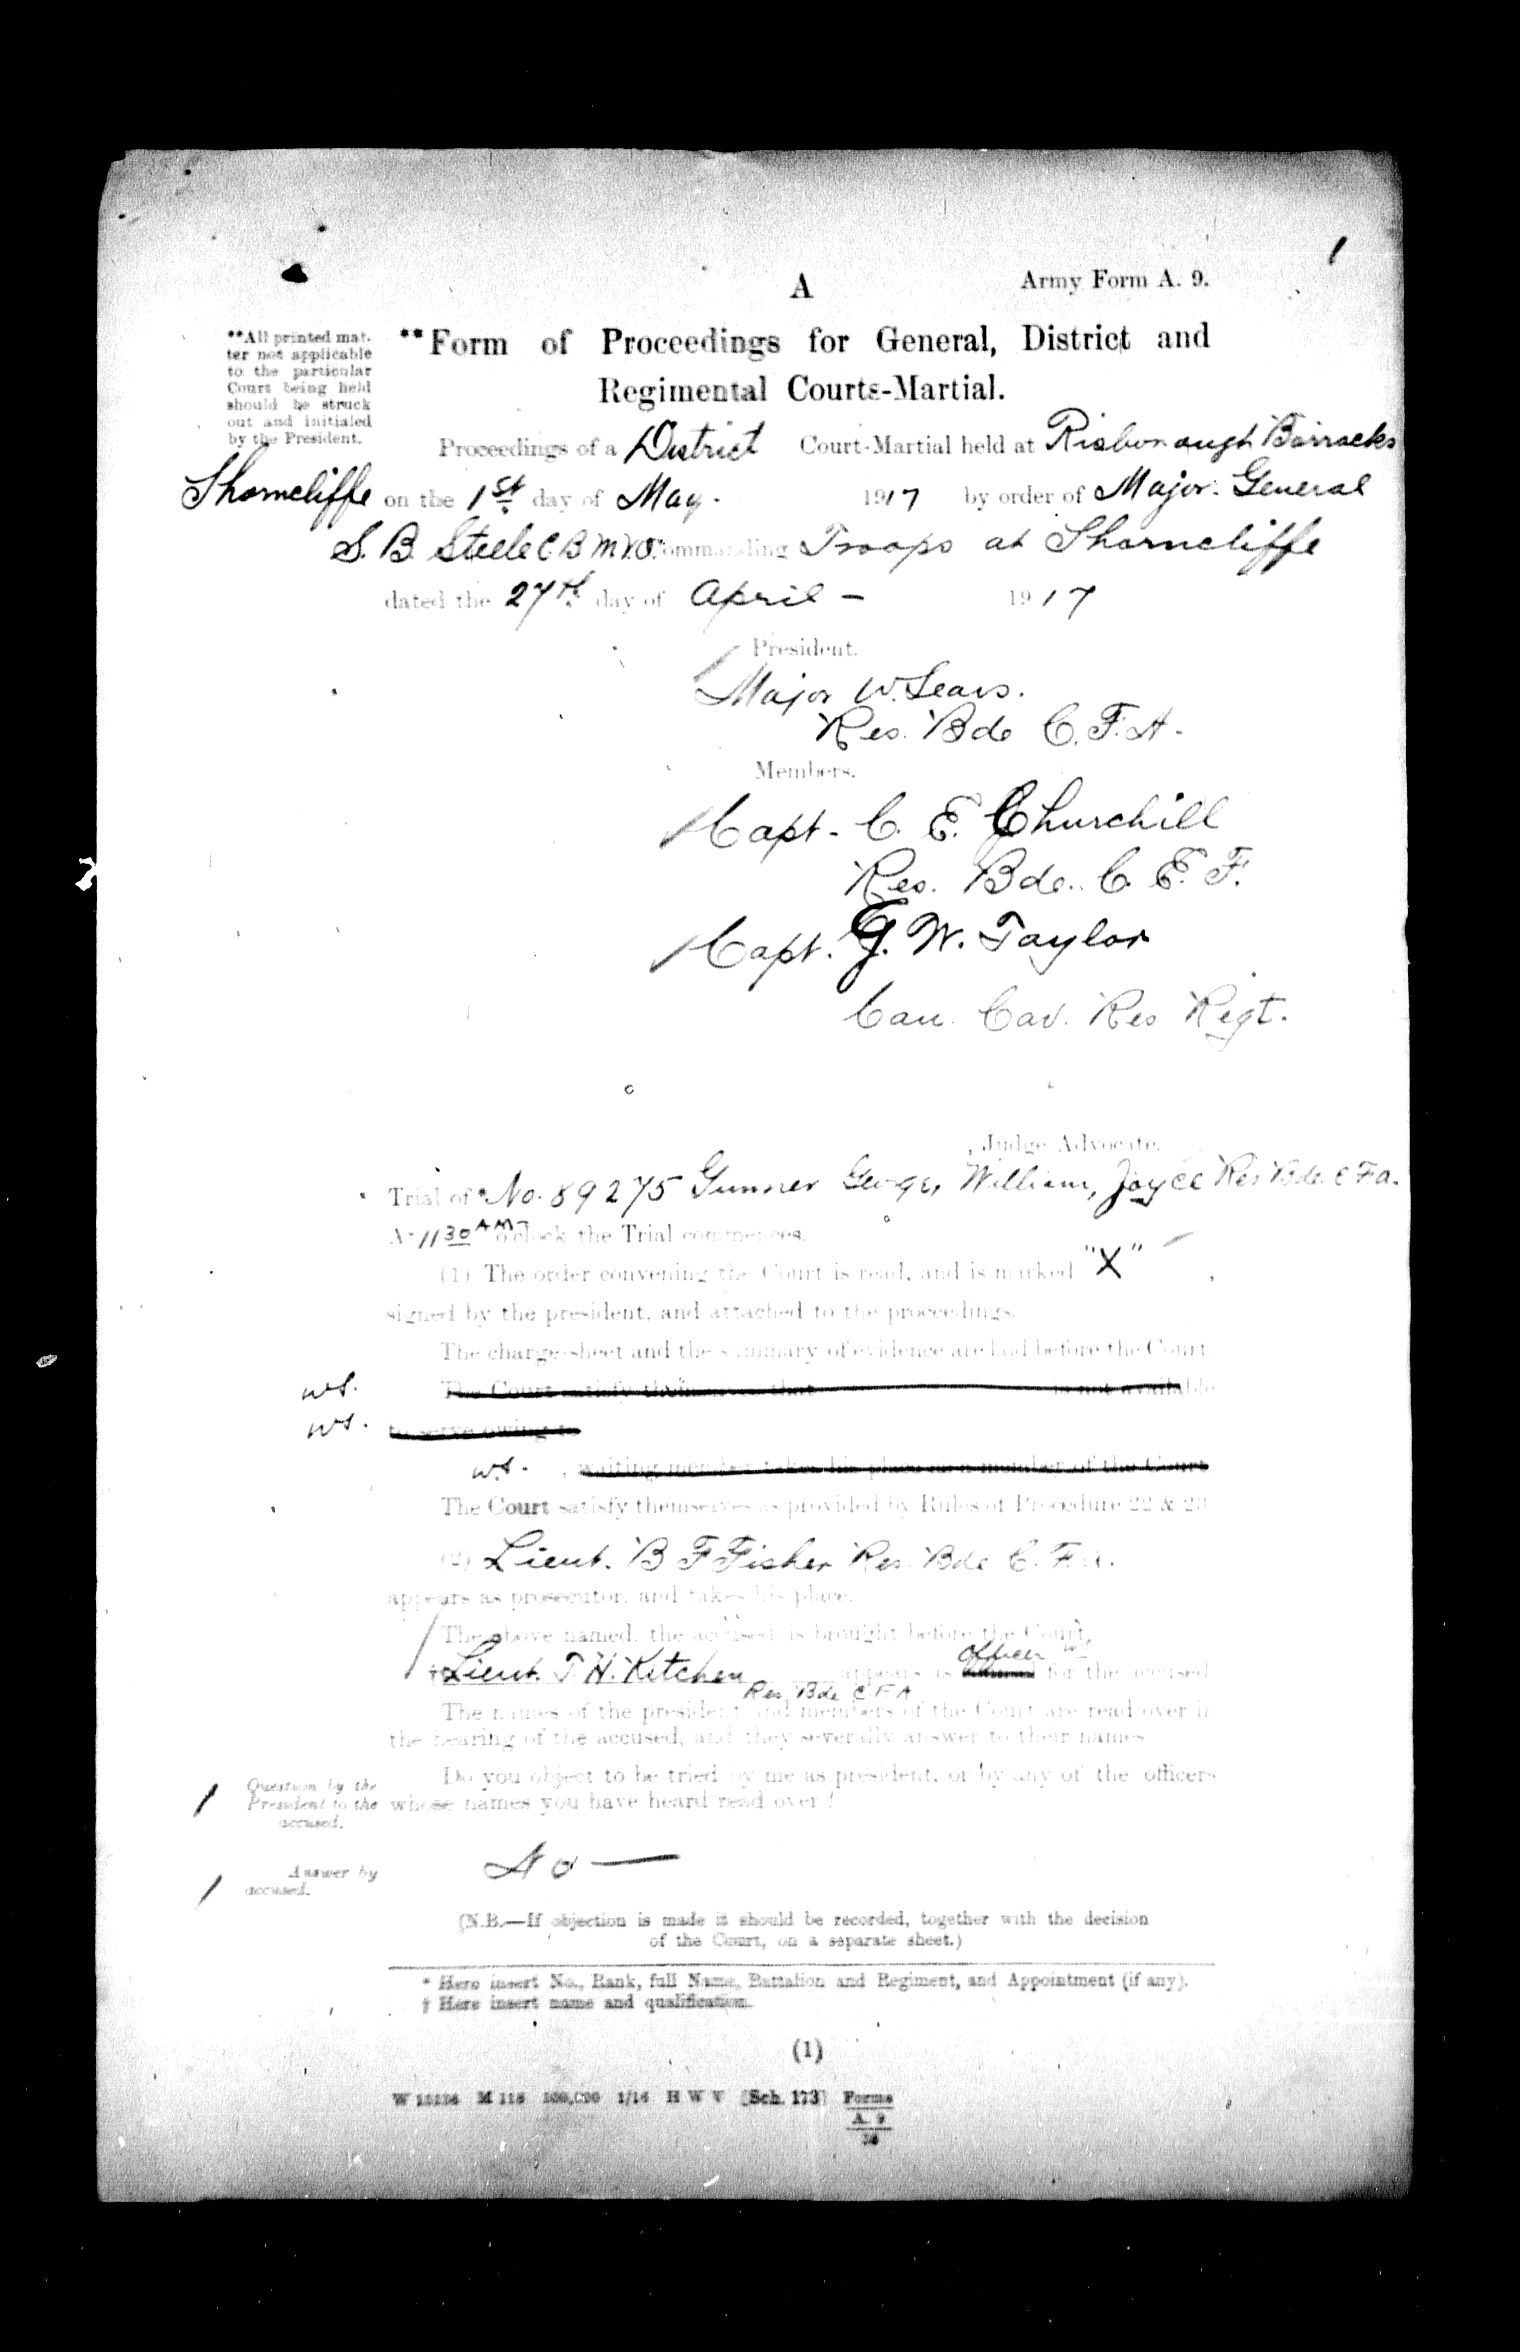 1
A
Army Form A. 9.
**All printed mat-
ter not applicable
to the particular
Court being held
should be struck
out and initialed
by the President.
**Form of Proceedings for General, District and
Regimental Courts-Martial.
Proceedings of a District Court-Martial held at Risborough Barracks
Shorncliffe on the 1st day of May. 1917 by order of Major. General
S. B. Steele C B M.V.O. Commanding Troops at Shorncliffe
dated the 27th day of April - 1917
President.
Major W. Sears.
Res. Bde C. F. A.
Members.
Capt. C. E. Churchill
Res. Bde. C. E. F.
Capt. G. W. Taylor
Can. Cav. Res Regt.
, Judge Advocate.
Trial of *No. 89275 Gunner George, William, Joyce Res Bde. C F A.
At 11 30 AM o'clock the Trial commences.
(1) The order convening the Court is read, and is marked "X" ,
signed by the president, and attached to the proceedings.
The charge-sheet and the summary of evidence are laid before the Court
ws. The Court satisfy themselves that is not available
ws. to serve owing to
ws. , waiting member takes his place as a member of the Court
The Court satisfy themselves as provided by Rules of Procedure 22 & 23
(2) Lieut. B F Fisher Res. Bde C. F. A.
appears as prosecutor, and takes his place.
The above named, the accused is brought before the Court.
officer ws
†Lieut. T. H. Kitchen appears as for the accused
Res Bde C F A
The names of the president and members of the Court are read over in
the hearing of the accused, and they severally answer to their names
Question by the
President to the
accused.
Do you object to be tried by me as president, or by any of the officers
whose names you have heard read over?
Answer by
accused.
No —
(N.B.—If objection is made it should be recorded, together with the decision
of the Court, on a separate sheet.)
* Here insert No., Rank, full Name, Battalion and Regiment, and Appointment (if any).
† Here insert name and qualification.
(1)
M 116 100,000 1/16 H W V (Sch. 173) Forms
A. 9